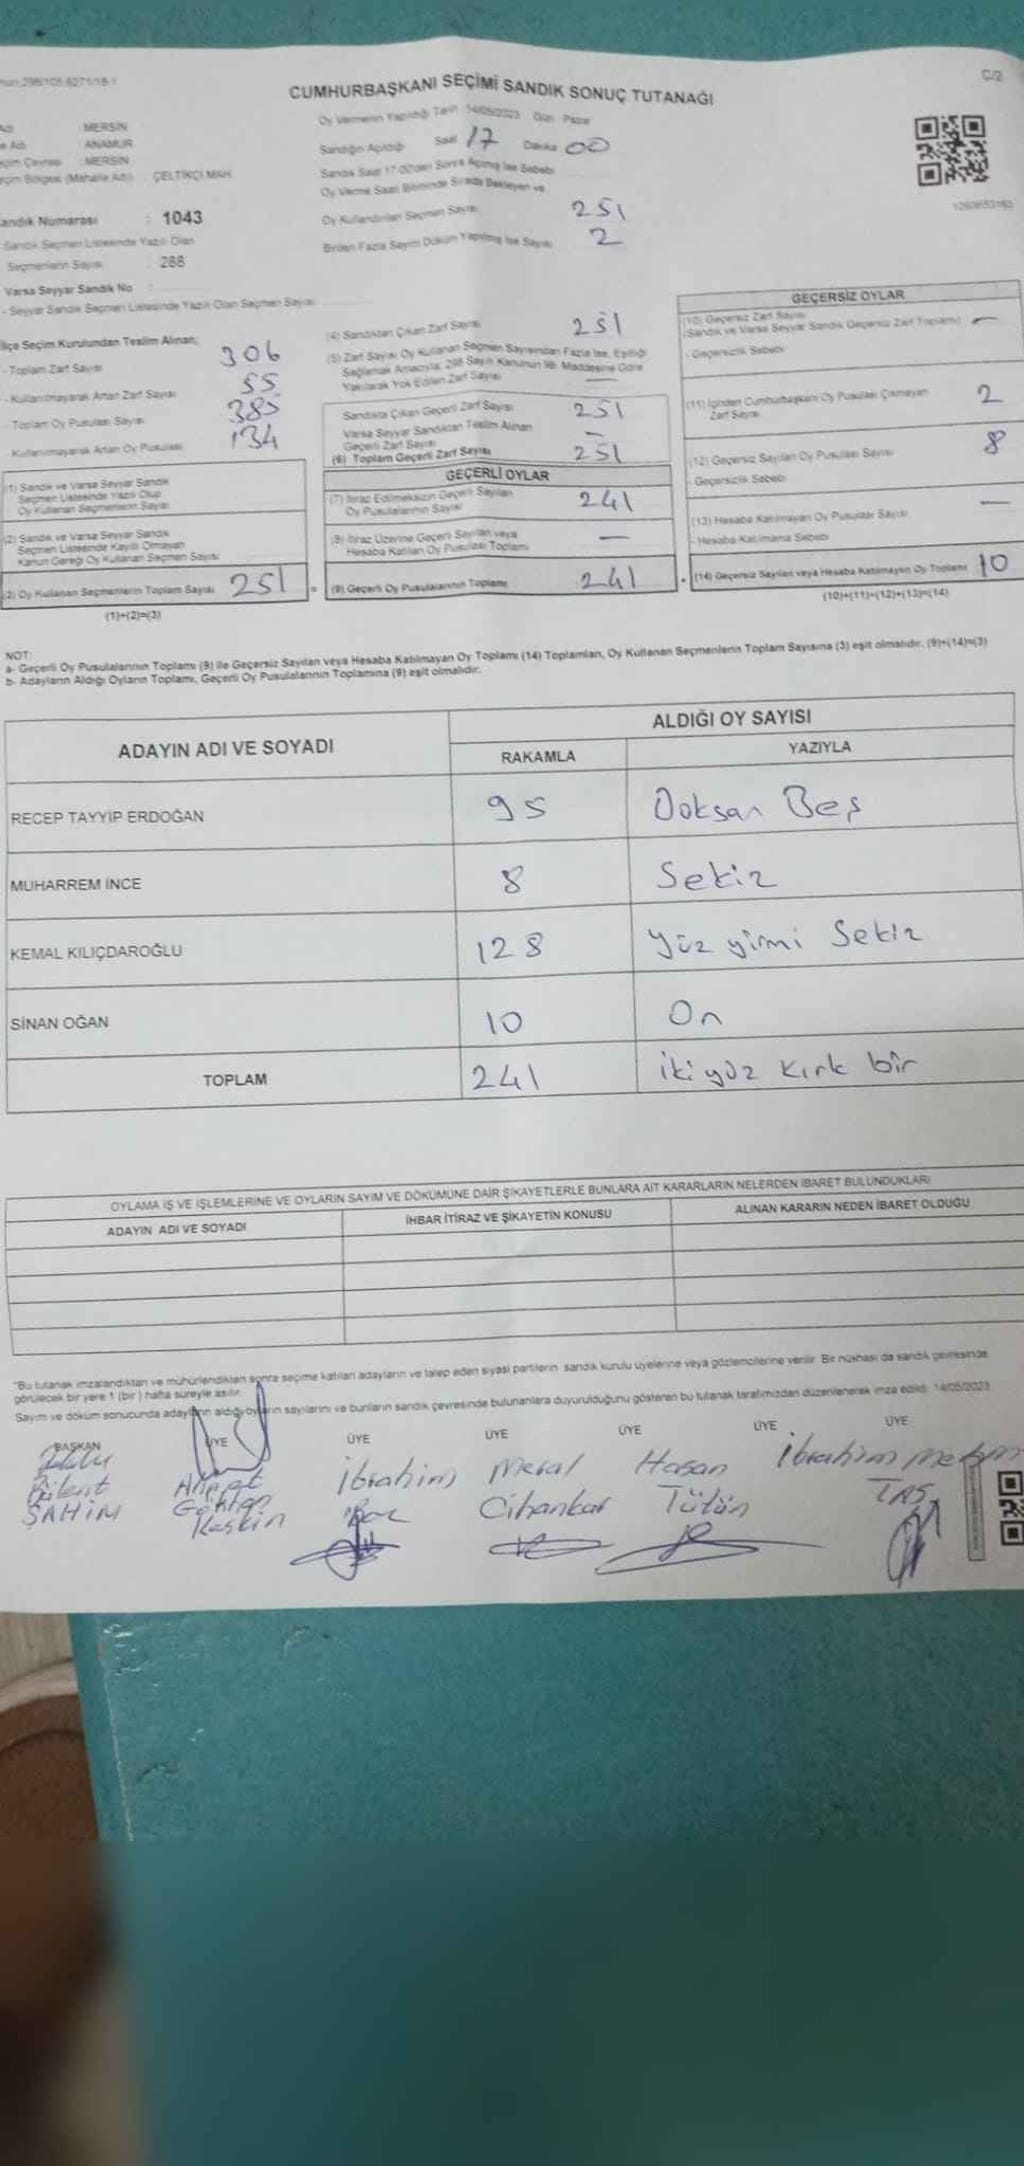 C/2
CUMHURBAŞKANI SEÇİMİ SANDIK SONUÇ TUTANAĞI
MERSİN
ANAMUR
MERSİN
ÇELTİKÇİ MAH.
Oy Vermenin Yapıldığı Tarih 14/05/2023 Gün Pazar
Sandığın Açıldığı Saat 17 Dakika 00
Sandık Saat 17:00'den Sonra Açılmış İse Sebebi
Oy Verme Saati Bitiminde Sırada Bekleyen ve
Oy Kullandırılan Seçmen Sayısı 251
Birden Fazla Sayım Döküm Yapılmış İse Sayısı 2
Sandık Numarası : 1043
Sandık Seçmen Listesinde Yazılı Olan
Seçmenlerin Sayısı : 288
Varsa Seyyar Sandık No
- Seyyar Sandık Seçmen Listesinde Yazılı Olan Seçmen Sayısı
İlçe Seçim Kurulundan Teslim Alınan;
- Toplam Zarf Sayısı 306
- Kullanılmayarak Artan Zarf Sayısı 55
- Toplam Oy Pusulası Sayısı 385
- Kullanılmayarak Artan Oy Pusulası 134
(1) Sandık ve Varsa Seyyar Sandık
Seçmen Listesinde Yazılı Olup
Oy Kullanan Seçmenlerin Sayısı
(2) Sandık ve Varsa Seyyar Sandık
Seçmen Listesinde Kayıtlı Olmayan
Kanun Gereği Oy Kullanan Seçmen Sayısı
(3) Oy Kullanan Seçmenlerin Toplam Sayısı 251 =
(1)+(2)=(3)
(4) Sandıktan Çıkan Zarf Sayısı 251
(5) Zarf Sayısı Oy Kullanan Seçmen Sayısından Fazla İse, Eşitliği
Sağlamak Amacıyla, 298 Sayılı Kanunun 98. Maddesine Göre
Yakılarak Yok Edilen Zarf Sayısı —
Sandıkta Çıkan Geçerli Zarf Sayısı 251
Varsa Seyyar Sandıktan Teslim Alınan
Geçerli Zarf Sayısı —
(6) Toplam Geçerli Zarf Sayısı 251
GEÇERLİ OYLAR
(7) İtiraz Edilmeksizin Geçerli Sayılan
Oy Pusulalarının Sayısı 241
(8) İtiraz Üzerine Geçerli Sayılan veya
Hesaba Katılan Oy Pusulası Toplamı —
(9) Geçerli Oy Pusulalarının Toplamı 241
GEÇERSİZ OYLAR
(10) Geçersiz Zarf Sayısı
(Sandık ve Varsa Seyyar Sandık Geçersiz Zarf Toplamı) —
- Geçersizlik Sebebi
(11) İçinden Cumhurbaşkanı Oy Pusulası Çıkmayan
Zarf Sayısı 2
(12) Geçersiz Sayılan Oy Pusulası Sayısı 8
- Geçersizlik Sebebi
(13) Hesaba Katılmayan Oy Pusulası Sayısı —
- Hesaba Katılmama Sebebi
(14) Geçersiz Sayılan veya Hesaba Katılmayan Oy Toplamı 10
(10)+(11)+(12)+(13)=(14)
NOT:
a- Geçerli Oy Pusulalarının Toplamı (9) ile Geçersiz Sayılan veya Hesaba Katılmayan Oy Toplamı (14) Toplamları, Oy Kullanan Seçmenlerin Toplam Sayısına (3) eşit olmalıdır. (9)+(14)=(3)
b- Adayların Aldığı Oyların Toplamı, Geçerli Oy Pusulalarının Toplamına (9) eşit olmalıdır.
ADAYIN ADI VE SOYADI
ALDIĞI OY SAYISI
RAKAMLA YAZIYLA
RECEP TAYYİP ERDOĞAN 95 Doksan Beş
MUHARREM İNCE 8 Sekiz
KEMAL KILIÇDAROĞLU 128 yüz yirmi Sekiz
SİNAN OĞAN 10 On
TOPLAM 241 iki yüz kırk bir
OYLAMA İŞ VE İŞLEMLERİNE VE OYLARIN SAYIM VE DÖKÜMÜNE DAİR ŞİKAYETLERLE BUNLARA AİT KARARLARIN NELERDEN İBARET BULUNDUKLARI
ADAYIN ADI VE SOYADI İHBAR İTİRAZ VE ŞİKAYETİN KONUSU ALINAN KARARIN NEDEN İBARET OLDUĞU
"Bu tutanak imzalandıktan ve mühürlendikten sonra seçime katılan adayların ve talep eden siyasi partilerin sandık kurulu üyelerine veya gözlemcilerine verilir. Bir nüshası da sandık çevresinde
görülecek bir yere 1 (bir) hafta süreyle asılır.
Sayım ve döküm sonucunda adayların aldığı oyların sayılarını ve bunların sandık çevresinde bulunanlara duyurulduğunu gösteren bu tutanak tarafımızdan düzenlenerek imza edildi. 14/05/2023
BAŞKAN ÜYE ÜYE ÜYE ÜYE ÜYE ÜYE
Bülent ŞAHİN
Ahmet Gökhan Keskin
İbrahim
Meral Cihankar
Hasan Tütün
İbrahim
TAŞ